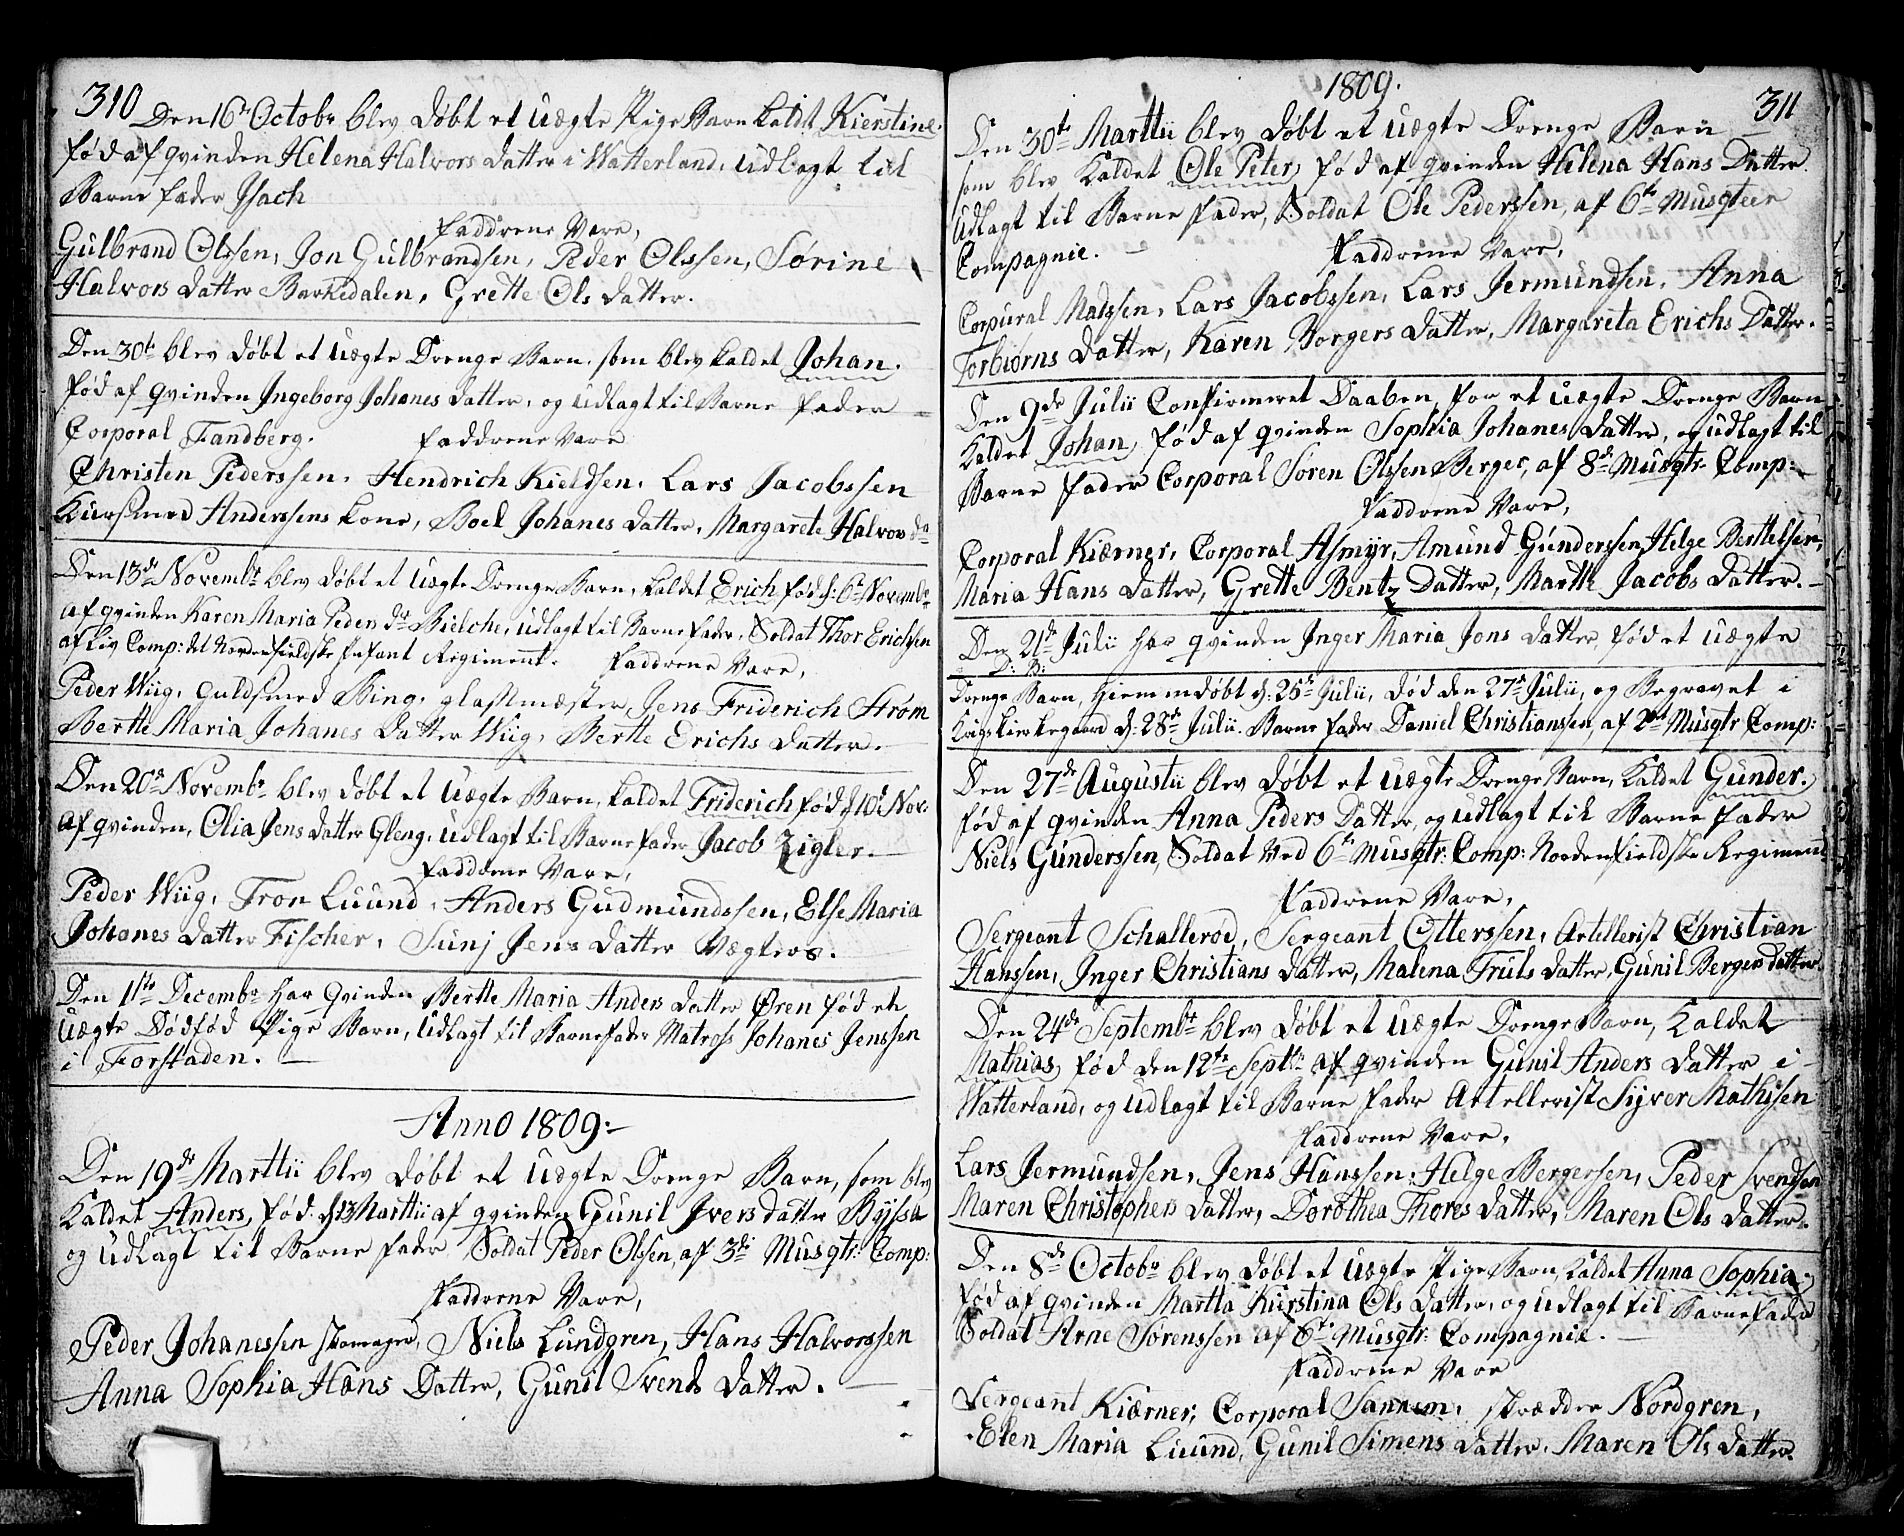 310
Den 16de Octobr blev døbt et uægte Pige Barn kaldt Kierstine.
fød af qvinden Helena Halvors datter i Watterland, udlagt til
Barne fader Isach
Faddrene Vare,
Gulbrand Olssen, Jon Gulbrandsen, Peder Olssen, Sørine
Halvors datter Barkedalen, Grette Ols datter.
Den 30te blev døbt et uægte Drenge Barn, som blev kaldet Johan.
fød af qvinden Ingeborg Johanes datter, og udlagt til Barne fader
Corporal Fandberg. Faddrene Vare
Christen Pederssen, Hendrich Kieldsen, Lars Jacobssen
Kursmed Anderssens kone, Boel Johanes datter, Margarete Halvors dr
Den 13de Novembr blev døbt et uægte Drenge Barn, kaldet Erich fød d: 6te Novembr
af qvinden Karen Maria Peders dr Bielche, udlagt til Barne fader, Soldat Thor Erichsen
af Liv Comp: det Nordenfieldske Infant Regiment. Faddrene Vare,
Peder Wiig, Guldsmed Bing, glassmæster, Jens Friderich Strøm
Berthe Maria Johanes datter Wiig, Berthe Erichs datter.
Den 20de Novembr blev døbt et uægte Barn, kaldet Friderich fød d 10de Nov:
af qvinden, Olia Jens datter Gleng, udlagt til Barne fader Jacob Zigler.
Fadddene Vare,
Peder Wiig, Tron Luund, Anders Gudmundssen, Else Maria
Johanes datter Fischer, Sunj Jens datter Vægters.
Den 1ste Decembr har qvinden Berthe Maria Anders datter Øren fød et
uægte Dødfød Pige Barn, udlagt til Barnefader Matross Johanes Jenssen
i Forstaden.
Anno 1809.
Den 19de Marttii blev døbt et uægte Drenge Barn, som blev
kaldet Anders, fød. d 13 Marttii af qvinden Gunil Ivers datter Byssa
og udlagt til Barne fader Soldat Peder Olssen, af 3die Musqtr: Comp:
Faddrene Vare,
Peder Johanessen skomager, Niels Lundgren, Hans Halvorssen
Anna Sophia Hans Datter, Gunil Svends datter.
1809.
311
Den 30te Marttii blev døbt et uægte Drenge Barn
som blev kaldet Ole Peter, fød af qvinden Helena Hans Datter.
udlagt til Barne fader, Soldat Ole Pederssen, af 6te Musqteer
Compagnie.
Faddrene Vare,
Corpural Madssen, Lars Jacobssen, Lars Jermundsen, Anna
Torbiørns datter, Karen Borgers datter, Margareta Erichs Datter.
Den 9de Julii Confirmeret Daaben for et uægte Drenge Barn
kaldet Johan, fød af qvinden Sophia Johanes datter, og udlagt til
Barne fader Corporal Søren Olssen Berger, af 8de Musqtr: Comp:
Faddrene Vare,
Corporal Kiærner, Corporal Asmyr, Amund Gunderssen, Helge Berthelsen,
Maria Hans datter, Grette Bentz Datter, Marthe Jacobs datter.
Den 21de Julii har qvinden Inger Maria Jons datter fød et uægte
D: B:
Drenge Barn, hiemmdøbt d: 25de Julii, død den 27de Julii, og Begravet i
Krigskirkegaard d: 28de Julii. Barne fader Daniel Christianssen, af 2det Musqtr Comp:
Den 27de Augustii blev døbt et uægte Drenge Barn, kaldet Gunder.
fød af qvinden Anna Peders datter, og udlagt til Barne fader
Niels Gunderssen, Soldat ved 6te Musqtr: Comp: Nordenfieldske Regiment
Faddrene Vare,
Sergeant Schallerød, Sergeant Otterssen, Artellerist Christian
Hanssen, Inger Christians datter, Malena Truls datter, Gunil Bergers datter
Den 24de Septembr blev døbt et uægte Drenge Barn, kaldet
Mathias, fød den 12te Septbr af qvinden Gunil Anders datter i
Watterland, og udlagt til Barne fader Artellerist Syver Mathisen
Faddrene Vare,
Lars Jermundsen, Jens Hanssen, Helge Bergersen, Peder Svendsen
Maren Christophers datter, Dorothea Thores datter, Maren Ols datter.
Den 8de Octobr blev døbt et uægte Pige Barn, kaldet Anna Sophia,
fød af qvinden Martta Kierstina Ols datter, og udlagt til Barne fader
Soldat Arne Sørenssen af 6te Musqtr: Compagnie.
Faddrene Vare
Sergeant Kiærner, Corporal Sannum, skrædder Nordgren,
Elen Maria Luund, Gunil Simens datter, Maren Ols datter.